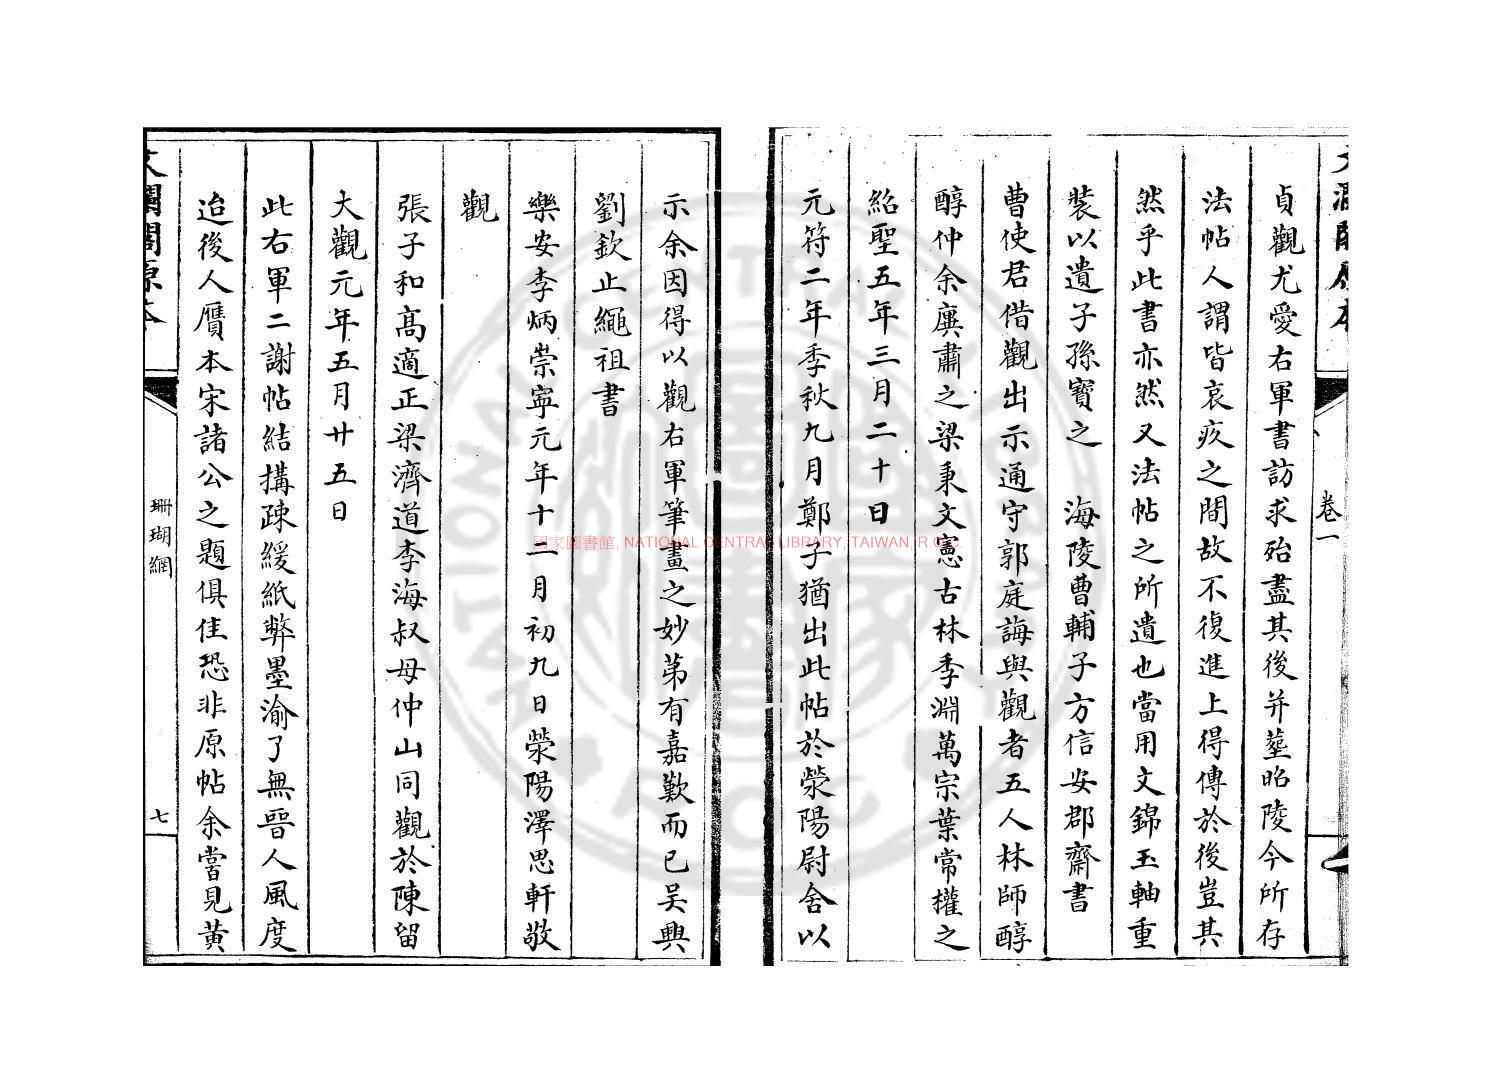 卷一
貞觀尤愛右軍書訪求殆盡其後并塟昭陵今所存
法帖人謂皆哀疚之間故不復進上得傳於後豈其
然乎此書亦然又法帖之所遺也當用文錦玉軸重
裝以遺子孫寶之 海陵曹輔子方信安郡齋書
曹使君借觀出示通守郭庭誨與觀者五人林師醇
醇仲余廙肅之梁秉文憲古林季淵萬宗葉常權之
紹聖五年三月二十日
元符二年季秋九月鄭子猶出此帖於滎陽尉舍以
示余因得以觀右軍筆畫之妙苐有嘉歎而已吴興
劉欽止繩祖書
樂安李炳崇寧元年十一月初九日滎陽澤思軒敬
觀
張子和高適正梁濟道李海叔母仲山同觀於陳留
大觀元年五月廿五日
此右軍二謝帖結搆疎緩紙弊墨渝了無晉人風度
迨後人贋本宋諸公之題俱佳恐非原帖余嘗見黃
文瀾閣原本
珊瑚網
七
國家圖書館, NATIONAL CENTRAL LIBRARY, TAIWAN, R.O.C